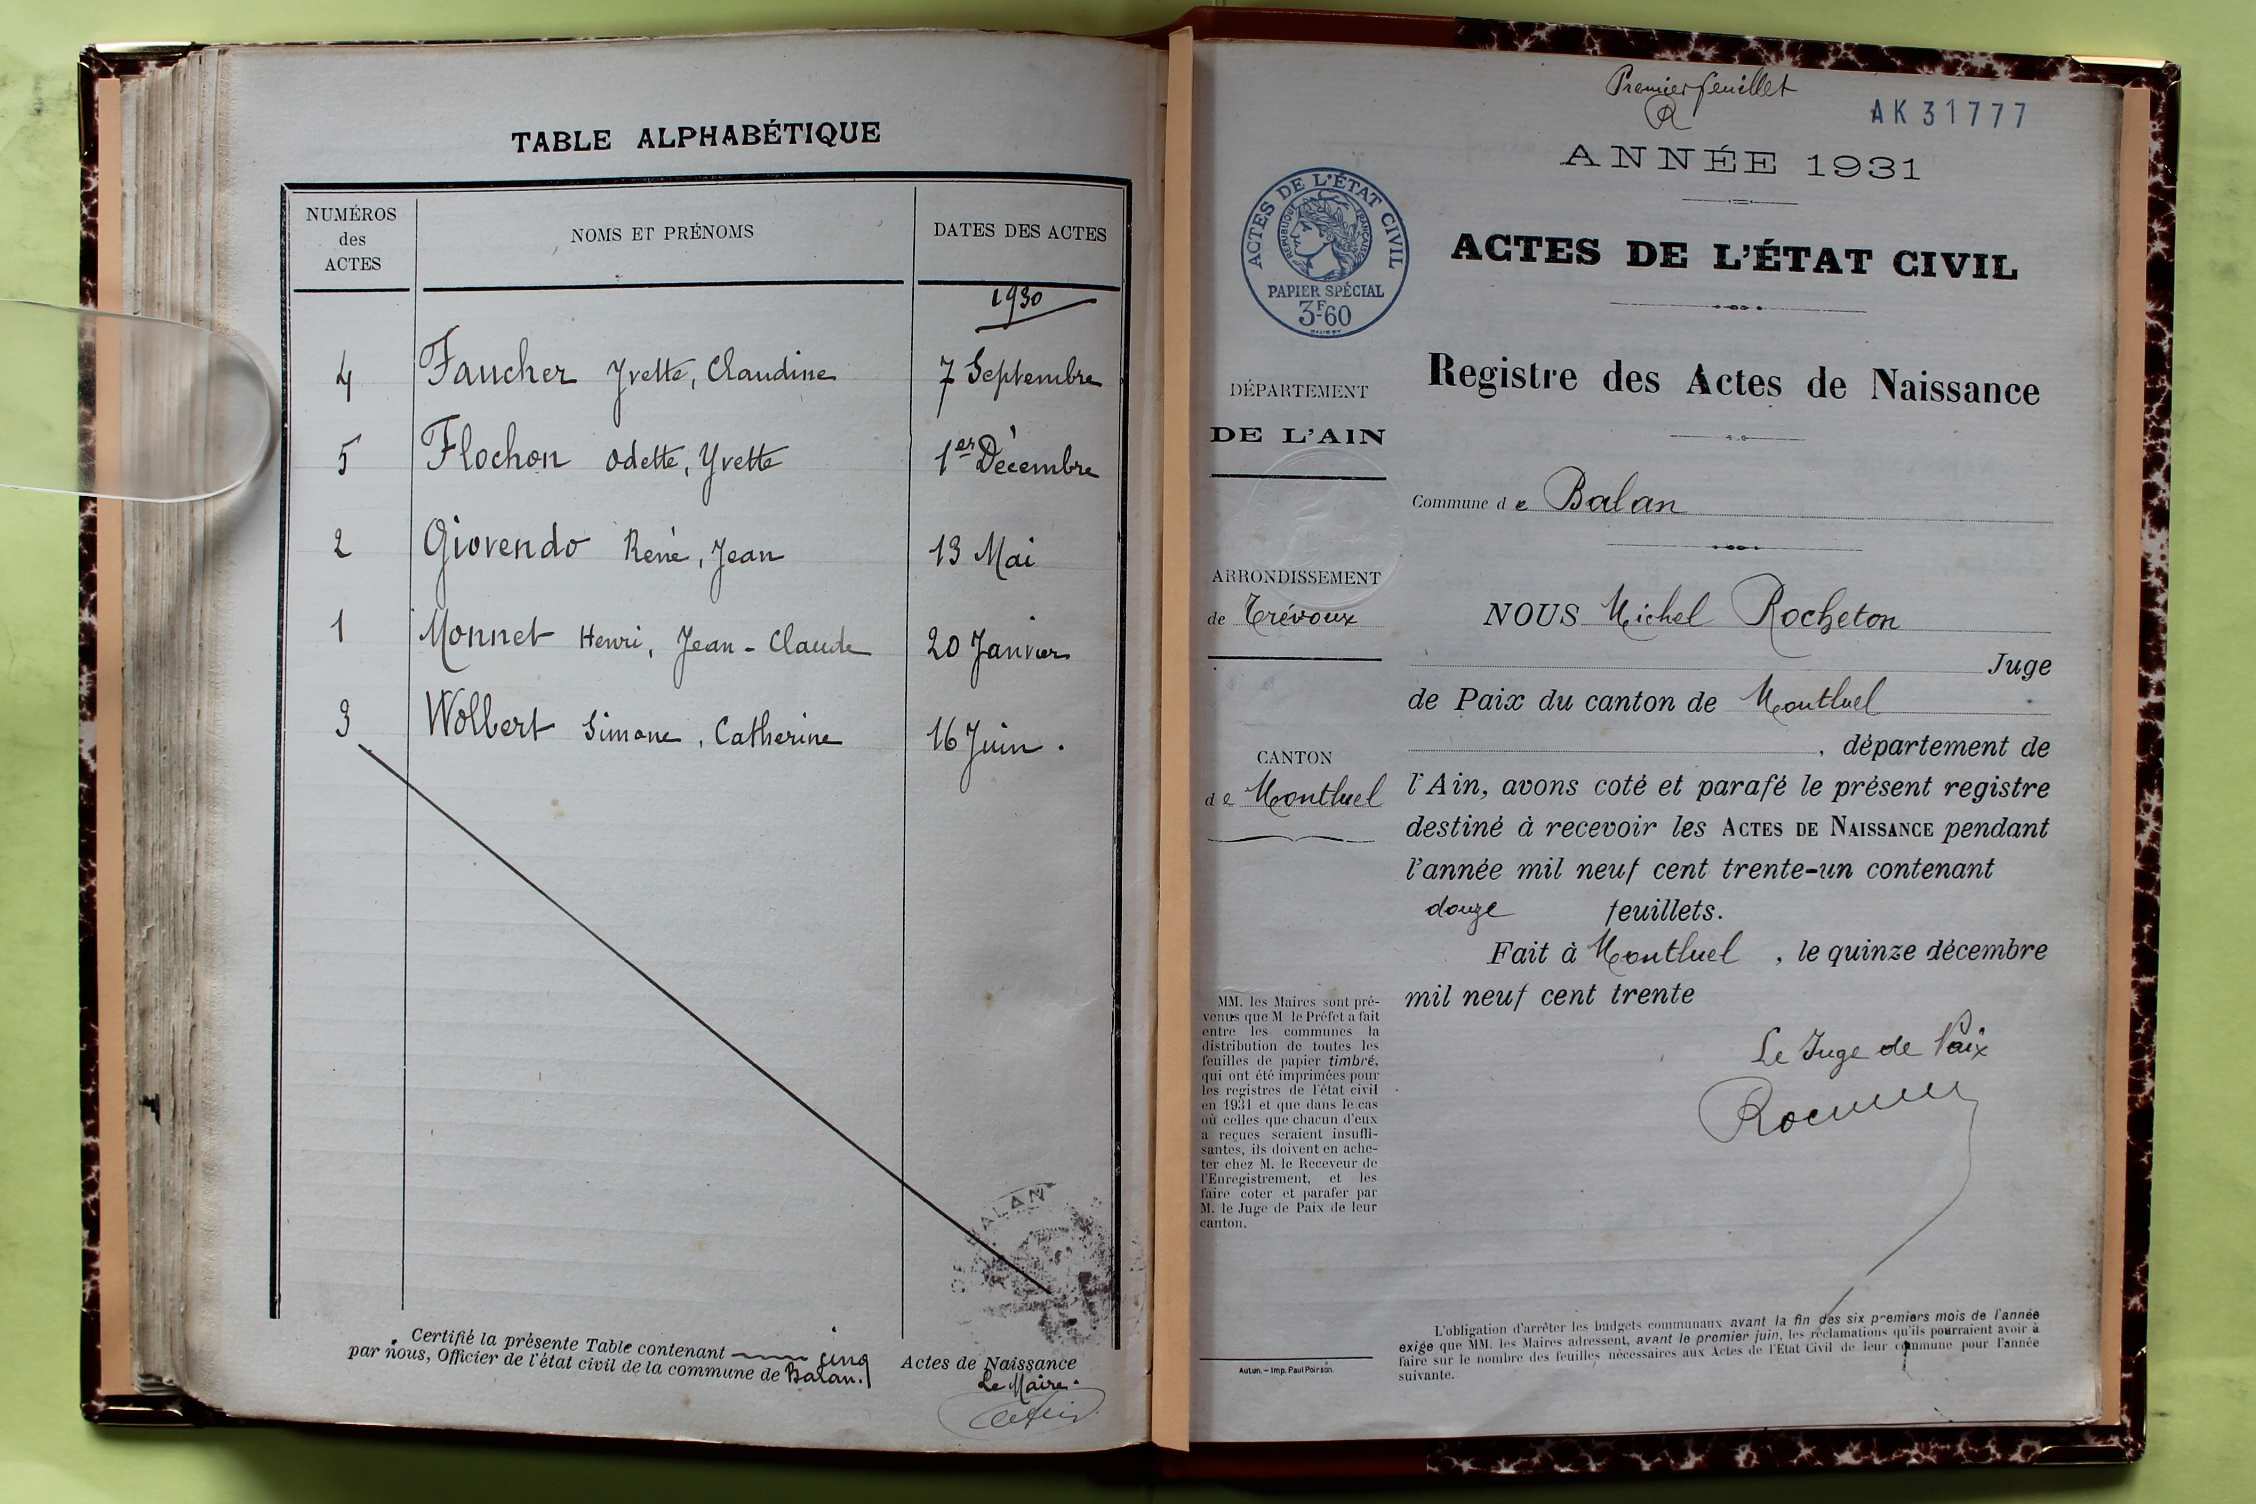 TABLE ALPHABÉTIQUE
NUMÉROS des ACTES
NOMS ET PRÉNOMS
DATES DES ACTES
1930
4 Faucher Yvette, Claudine 7 Septembre
5 Flochon Odette, Yvette 1er Décembre
2 Giovendo René, Jean 13 Mai
1 Monnet Henri, Jean-Claude 20 Janvier
3 Wolbert Simone, Catherine 16 Juin.
BALAN
Certifié la présente Table contenant cinq Actes de Naissance
par nous, Officier de l'état civil de la commune de Balan.
Le Maire.
Premier feuillet
R
AK 31777
ANNÉE 1931
ACTES DE L'ÉTAT CIVIL
RÉPUBLIQUE FRANÇAISE
PAPIER SPÉCIAL
3F60
ACTES DE L'ÉTAT CIVIL
Registre des Actes de Naissance
DÉPARTEMENT
DE L'AIN
Commune de Balan
ARRONDISSEMENT
de Trévoux
CANTON
de Montluel
NOUS Michel Rocheton
Juge
de Paix du canton de Montluel
, département de
l'Ain, avons coté et parafé le présent registre
destiné à recevoir les ACTES DE NAISSANCE pendant
l'année mil neuf cent trente-un contenant
douze feuillets.
Fait à Montluel, le quinze décembre
mil neuf cent trente
Le Juge de Paix
MM. les Maires sont pré-
venus que M. le Préfet a fait
entre les communes la
distribution de toutes les
feuilles de papier timbré,
qui ont été imprimées pour
les registres de l'état civil
en 1931 et que dans le cas
où celles que chacun d'eux
a reçues seraient insuffi-
santes, ils doivent en ache-
ter chez M. le Receveur de
l'Enregistrement, et les
faire coter et parafer par
M. le Juge de Paix de leur
canton.
Autun. — Imp. Paul Poirson.
L'obligation d'arrêter les budgets communaux avant la fin des six premiers mois de l'année
exige que MM. les Maires adressent, avant le premier juin, les réclamations qu'ils pourraient avoir à
faire sur le nombre des feuilles nécessaires aux Actes de l'Etat Civil de leur commune pour l'année
suivante.